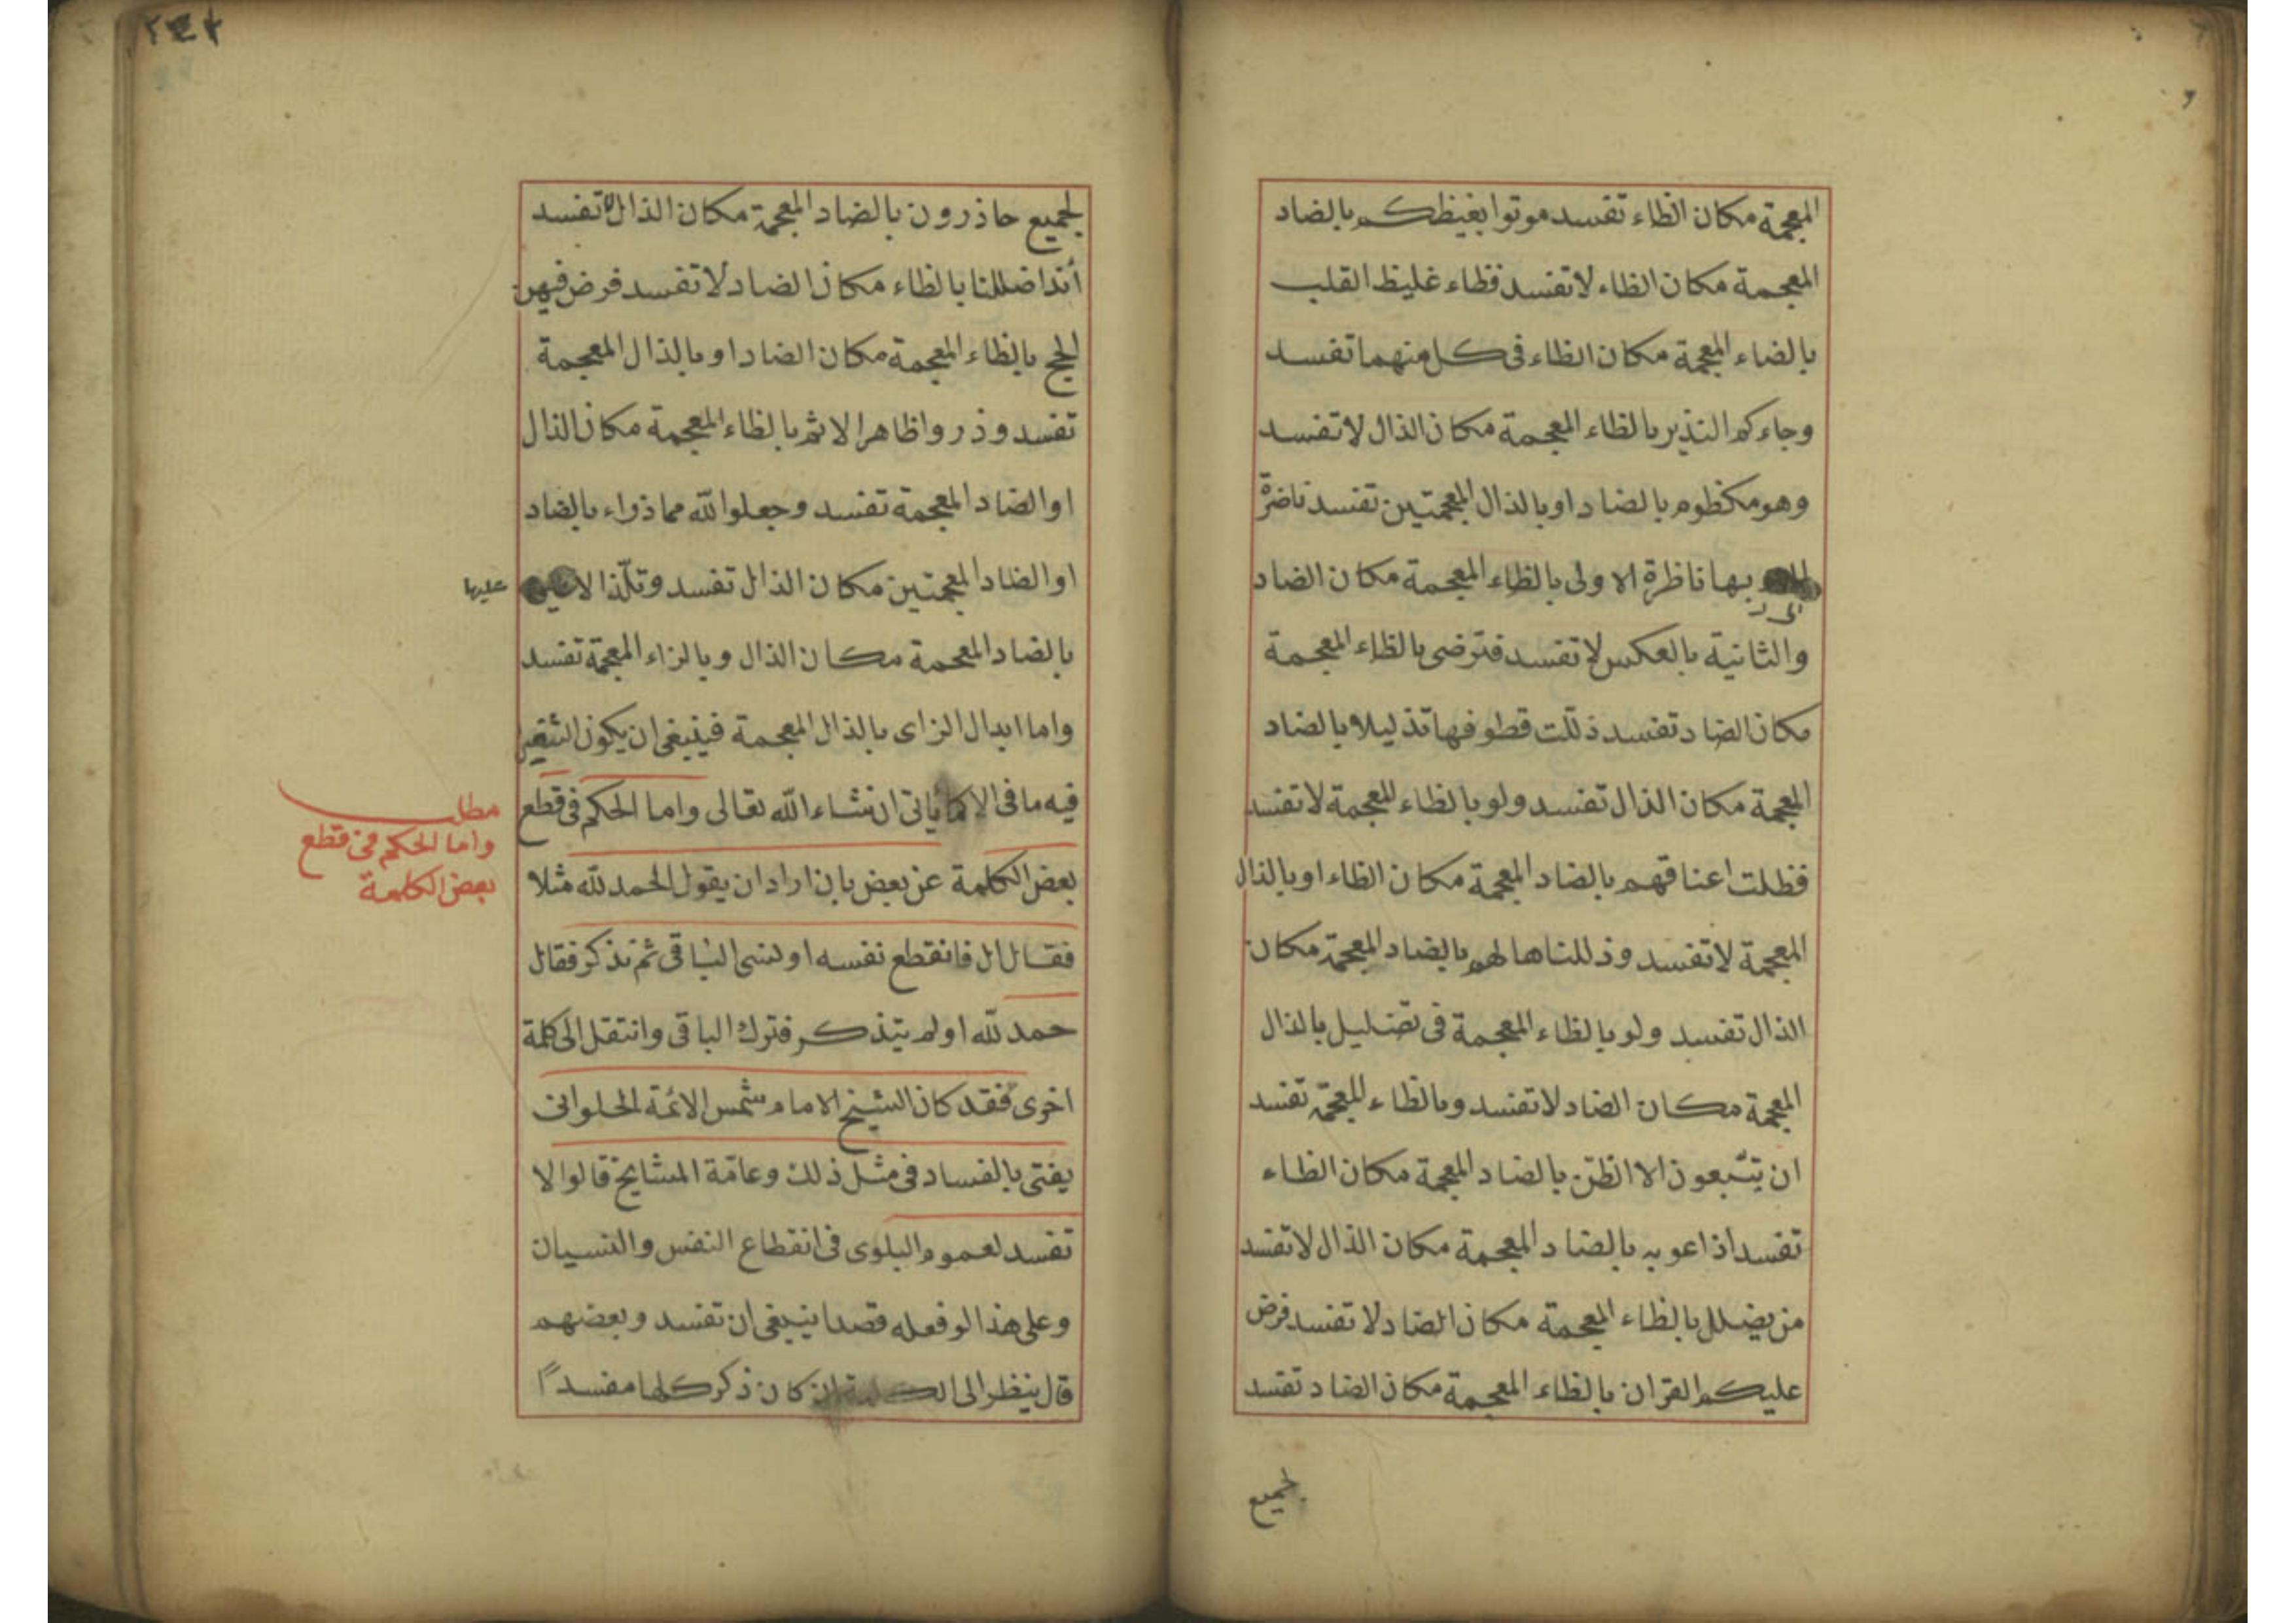 المعجمة مكان الظاء تفسد موتوا بغيظكم بالضاد
المعجمة مكان الظاء لا تفسد فظاء غليظ القلب
بالضاء المعجمة مكان الظاء فى كل منهما تفسد
وجاءكم النذير بالظاء المعجمة مكان الذال لا تفسد
وهو مكظوم بالضاد او بالذال المعجمتين تفسد ناضرة
الى ر بها ناظرة الاولى بالظاء المعجمة مكان الضاد
والثانية بالعكس لا تفسد فترضى بالظاء المعجمة
مكان الضاد تفسد ذللت قطوفها تذليلا بالضاد
المعجمة مكان الذال تفسد ولو بالظاء المعجمة لا تفسد
فظلت اعناقهم بالضاد المعجمة مكان الظاء او بالذال
المعجمة لا تفسد وذللناها لهم بالضاد المعجمة مكان
الذال تفسد ولو بالظاء المعجمة فى تضليل بالذال
المعجمة مكان الضاد لا تفسد وبالظاء المعجمة تفسد
ان يتبعون الا الظن بالضاد المعجمة مكان الظاء
تفسد اذاعوبه بالضاد المعجمة مكان الذال لا تفسد
من يضلل بالظاء المعجمة مكان الضاد لا تفسد فرض
عليكم القران بالظاء المعجمة مكان الضاد تفسد
لجميع
لجميع حاذرون بالضاد المعجمة مكان الذال لا تفسد
أئذا ضللنا بالظاء مكان الضاد لا تفسد فرض فيهن
الحج بالظاء المعجمة مكان الضاد او بالذال المعجمة
تفسد وذروا ظاهر الاثم بالظاء المعجمة مكان الذال
او الضاد المعجمة تفسد وجعلوا لله مما ذراء بالضاد
او الضاد المعجمتين مكان الذال تفسد وتلذ الاعين
عليها
بالضاد المعجمة مكان الذال وبالزاء المعجمة تفسد
واما ابدال الزاى بالذال المعجمة فينبغى ان يكون
فيه ما فى يأتى ان نشاء الله تعالى واما الحكم فى قطع
مطلب
واما الحكم فى قطع
بعض الكلمة
بعض الكلمة عن بعض بان اراد ان يقول الحمد لله مثلا
فقال ال فانقطع نفسه او نسى الباقى ثم تذكر فقال
حمد لله او لم يتذكر فترك الباقى وانتقل الى كلمة
اخرى فقد كان الشيخ الامام شمس الائمة الحلوانى
يفتى بالفساد فى مثل ذلك وعامّة المشايخ قالوا لا
تفسد لعموم البلوى فى انقطاع النفس والنسيان
وعلى هذا لو فعله قصدا ينبغى ان تفسد وبعضهم
قال ينظر الى الكلمة ان كان ذكر كلها مفسدًا